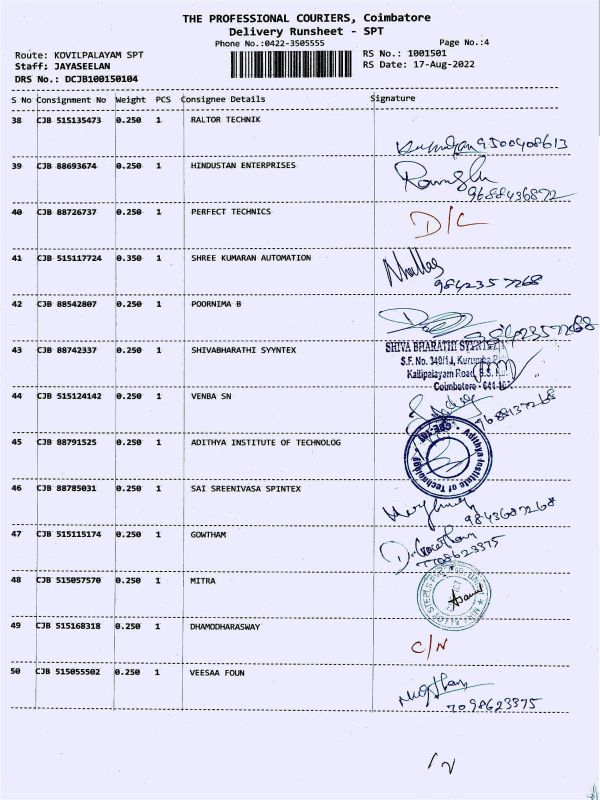 THE PROFESSIONAL COURIERS, Coimbatore
Delivery Runsheet - SPT
Phone No.:0422-3505555 Page No.:4
Route: KOVILPALAYAM SPT RS No.: 1001501
Staff: JAYASEELAN RS Date: 17-Aug-2022
DRS No.: DCJB100150104
S No Consignment No Weight PCS Consignee Details Signature
38 CJB 515135473 0.250 1 RALTOR TECHNIK
9500408613
39 CJB 88693674 0.250 1 HINDUSTAN ENTERPRISES
9688436872
40 CJB 88726737 0.250 1 PERFECT TECHNICS D/L
41 CJB 515117724 0.350 1 SHREE KUMARAN AUTOMATION
9842357268
42 CJB 88542807 0.250 1 POORNIMA B
9842357268
43 CJB 88742337 0.250 1 SHIVABHARATHI SYYNTEX SHIVA BHARATHI SYYNTEX
S.F. No. 340/1J,
Kallipalayam Road,
Coimbatore - 641
44 CJB 515124142 0.250 1 VENBA SN
9688137268
45 CJB 88791525 0.250 1 ADITHYA INSTITUTE OF TECHNOLOG Adithya Institute of Technology
46 CJB 88785031 0.250 1 SAI SREENIVASA SPINTEX
9843687268
47 CJB 515115174 0.250 1 GOWTHAM
7708623375
48 CJB 515057570 0.250 1 MITRA
49 CJB 515168318 0.250 1 DHAMODHARASWAY C/N
50 CJB 515055502 0.250 1 VEESAA FOUN
7098623375